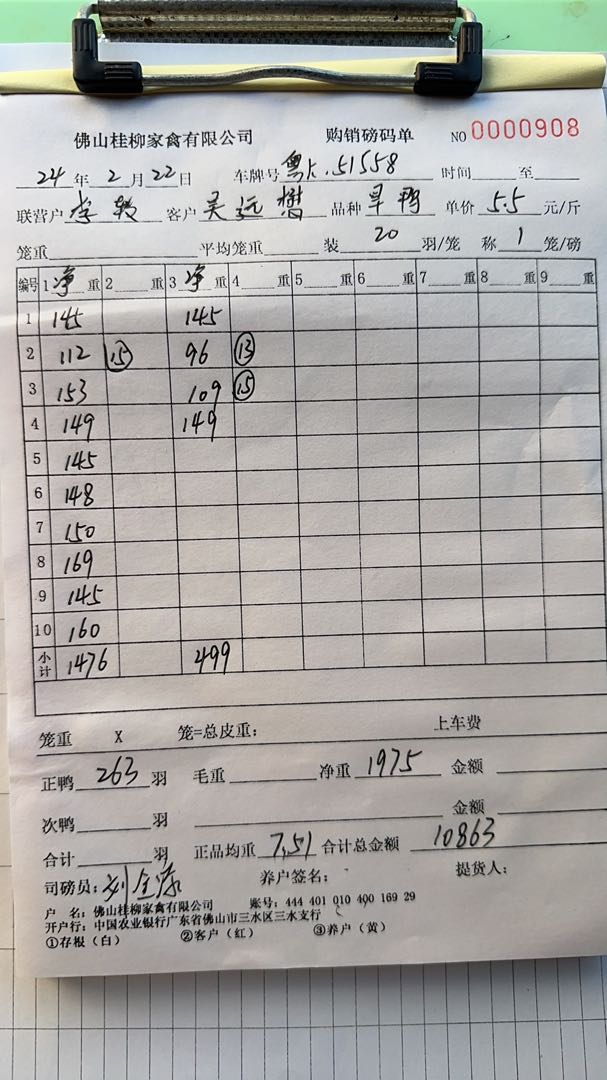 佛山桂柳家禽有限公司 购销磅码单 NO 0000908
24 年 2 月 22 日 车牌号 粤 .51558 时间 至
联营户 李 客户 吴远 品种 旱鸭 单价 5.5 元/斤
笼重 平均笼重 装 20 羽/笼 称 1 笼/磅
编号 1 净 重 2 重 3 净 重 4 重 5 重 6 重 7 重 8 重 9 重
1 145 145
2 112 15 96 13
3 153 109 15
4 149 149
5 145
6 148
7 150
8 169
9 145
10 160
小计 1476 499
笼重 X 笼=总皮重: 上车费
正鸭 263 羽 毛重 净重 1975 金额
次鸭 羽 金额
合计 羽 正品均重 7.51 合计总金额 10863
司磅员: 刘 养户签名: 提货人:
户 名: 佛山桂柳家禽有限公司 账号: 444 401 010 400 169 29
开户行: 中国农业银行广东省佛山市三水区三水支行
①存根（白） ②客户（红） ③养户（黄）